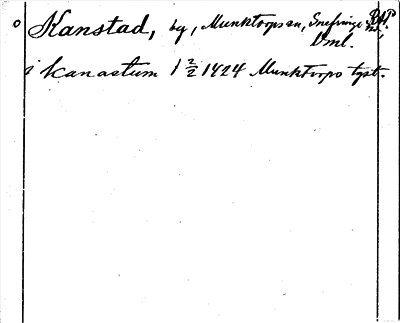 Kanstad, by, Munktorps sn, Snefringe hd,
Vml.
i kanastum 1 2/2 1424 Munktorps tgst.